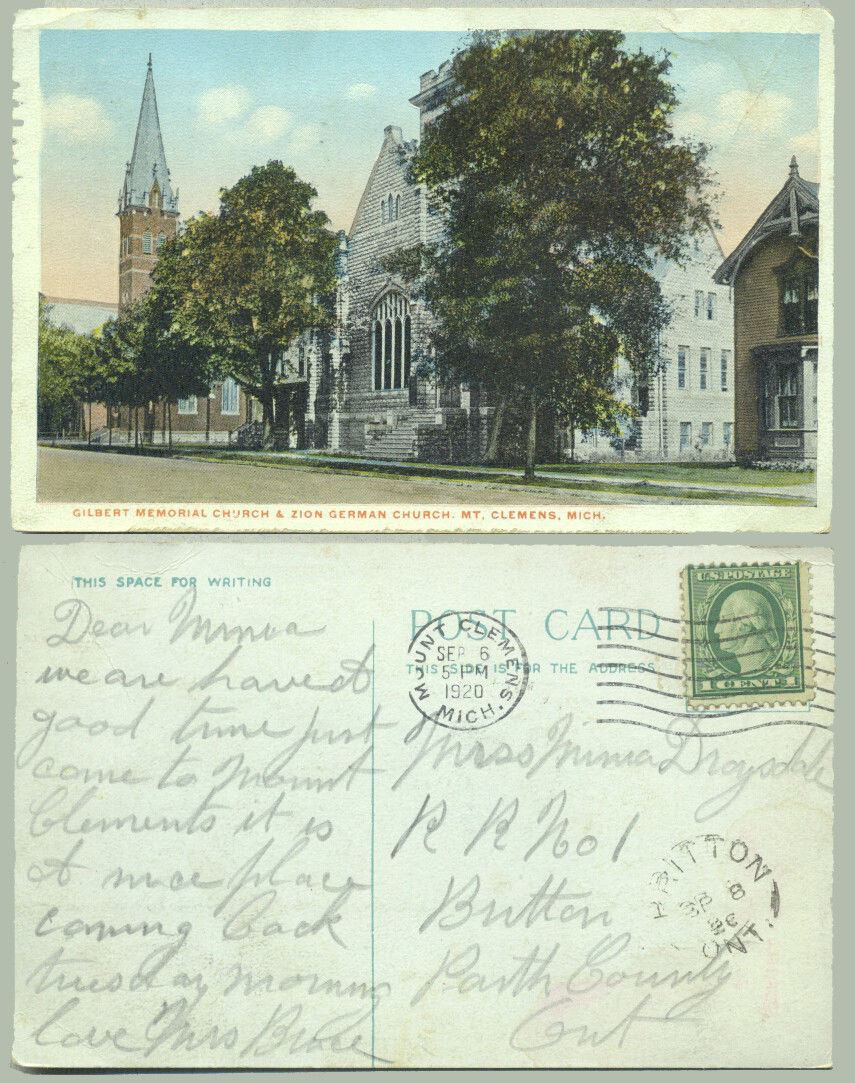 GILBERT MEMORIAL CHURCH & ZION GERMAN CHURCH. MT. CLEMENS, MICH.
THIS SPACE FOR WRITING
Dear Minia
we are have A
good time just
come to Mount
Clements it is
A nice place
coming back
tuesday morning
love Mrs
POST CARD
THIS SIDE IS FOR THE ADDRESS
MOUNT CLEMENS MICH.
SEP 6
5-PM
1920
U.S. POSTAGE
1 CENT 1
Miss Minia Drysdale
R R No 1
Britton
Perth County
Ont
BRITTON
SP 8
ONT.